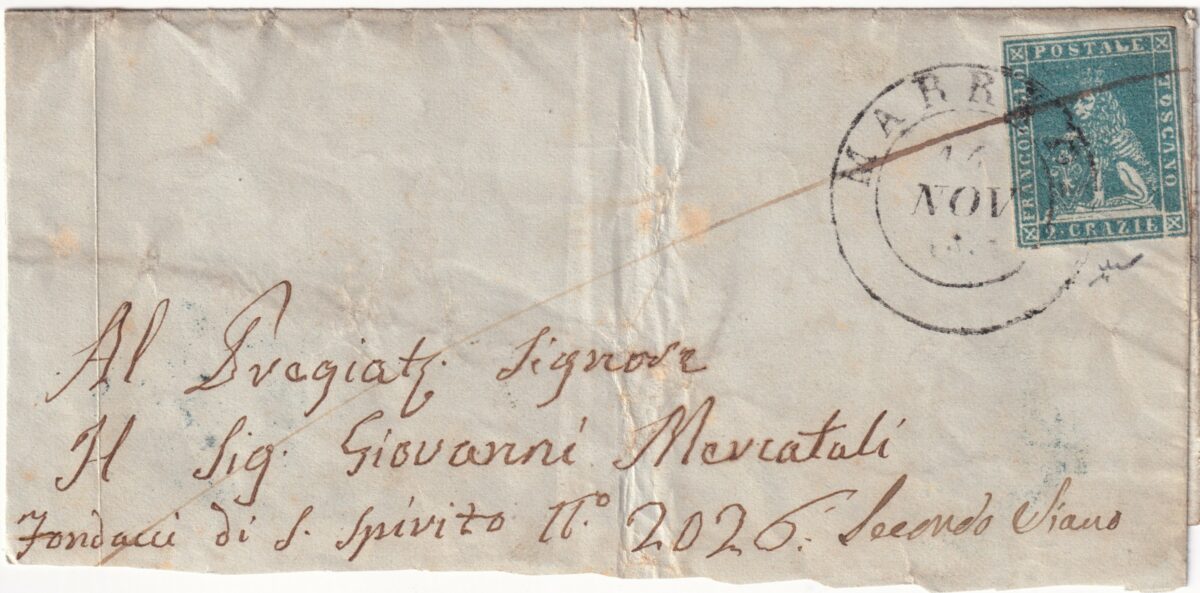 FRANCOBOLLO POSTALE TOSCANO
2 CRAZIE
MARRADI
16
NOV
Al Pregiatᵐᵒ Signore
Il Sig. Giovanni Mercatali
Fondacci di S. Spirito N.° 2026: Secondo Piano